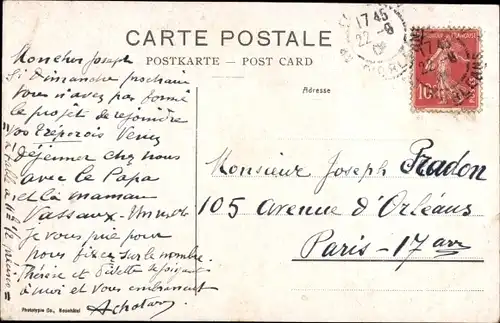 CARTE POSTALE
POSTKARTE - POST CARD
Adresse
17 45
22 - 6
10
Mon cher Joseph
Si Dimanche prochain
vous n'avez pas formé
le projet de rejoindre
vos Treporois Venez
déjeuner chez nous
avec le Papa
et la maman
Vassaux
Je vous prie pour
nous fixer sur le nombre.
Thérèse et
à moi et vous embrassent
Monsieur Joseph Pradon
105 Avenue d'Orléans
Paris - 17 arr
Phototypie Co., Neuchâtel